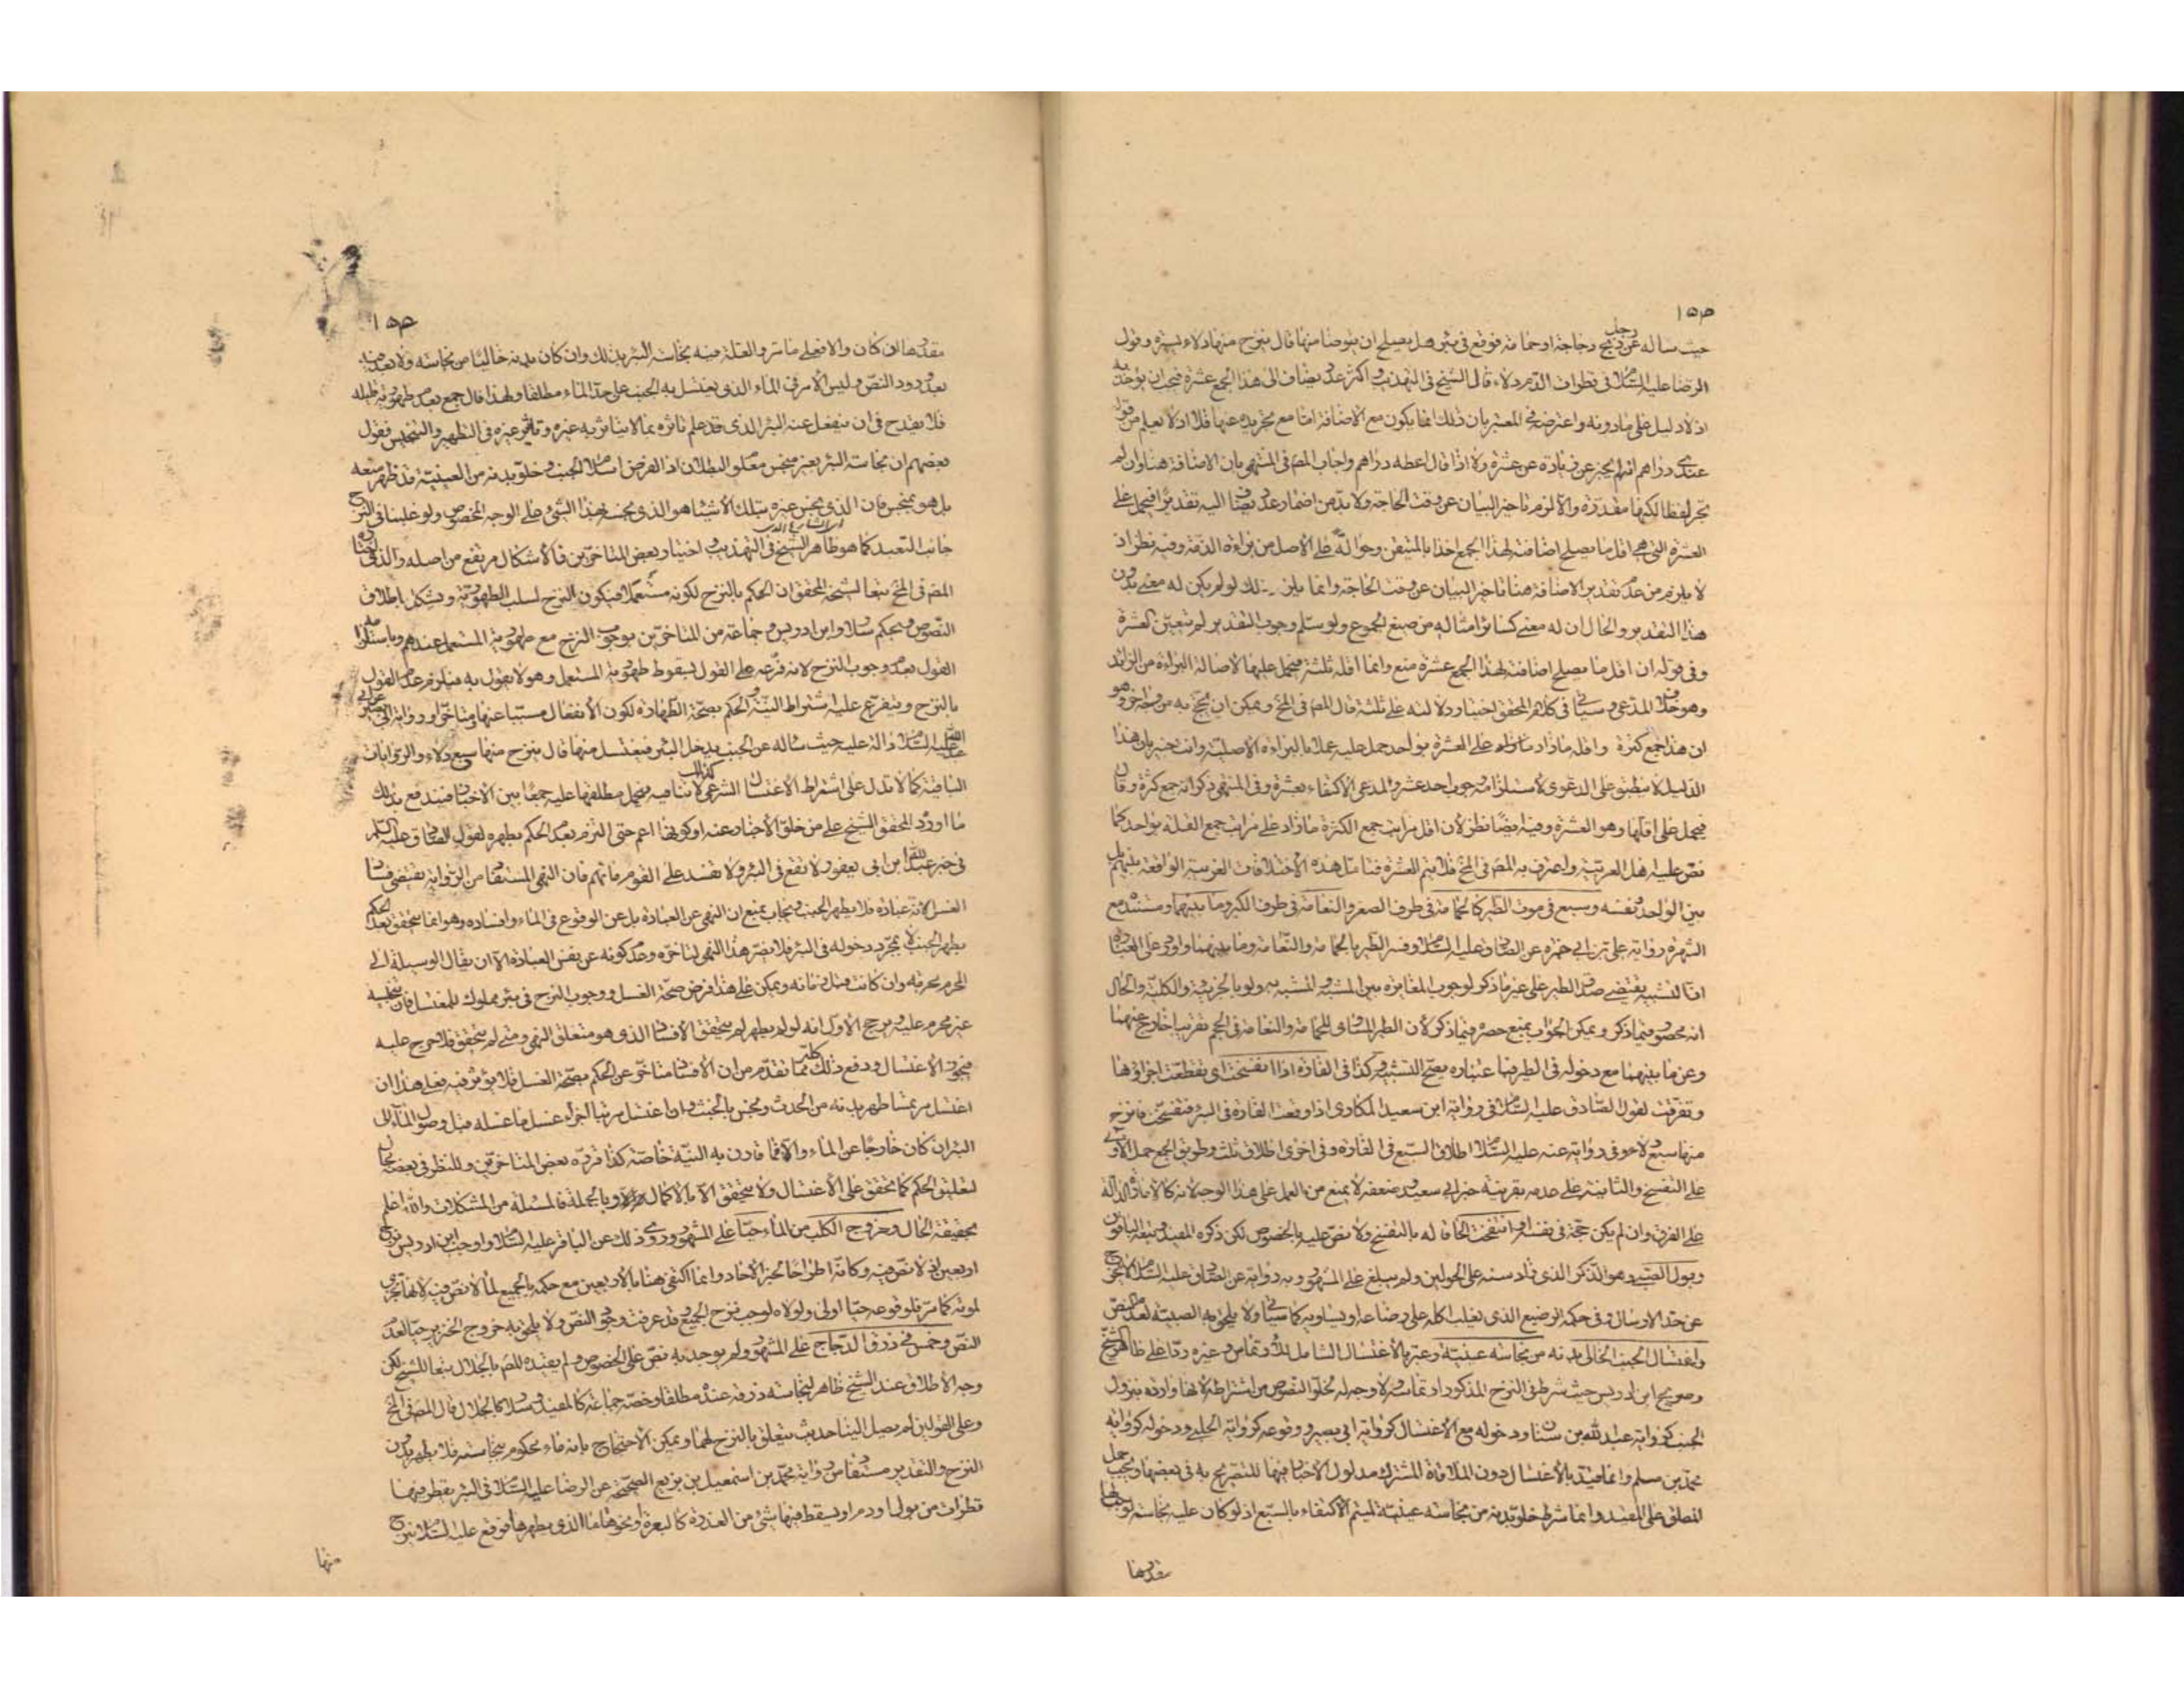 ١٥٣
حيث ساله عن رجل ذبح دجاجة او حمامة فوقع في بئر هل يصلح ان يتوضأ منها قال ينزح منها دلاء يسيرة وقول
الرضا عليه السلام في قطرات الدم دلاء قال الشيخ في التهذيب واكثر عدد يضاف الى هذا الجمع عشرة فيجب ان يؤخذ به
اذ لا دليل على ما دونه واعترضه في المعتبر بان ذلك انما يكون مع الاضافة اما مع تجريده عنها فلا اذ لا يعلم من قول
عندي دراهم انه لم يخبر عن زيادة عن عشرة ولا اذا قال اعطه دراهم واجاب المص في المنتهى بان الاضافة هنا وان لم
تجر لفظا لكنها مقدرة والا لزم تاخير البيان عن وقت الحاجة ولا بد من اضمار عدد يضاف اليه تقديرا فيحمل على
العشرة التي هي اقل ما يصلح اضافته لهذا الجمع اخذا بالمتيقن وحوالة على الاصل من براءة الذمة وفيه نظر اذ
لا يلزم من عدم تقدير الاضافة هنا تاخير البيان عن وقت الحاجة وانما يلزم ذلك لو لم يكن له معنى بدون
هذا التقدير والحال ان له معنى كسائر امثاله من صيغ الجموع ولو سلم وجوب التقدير لم تتعين العشرة
وفي قوله ان اقل ما يصلح اضافته لهذا الجمع عشرة منع وانما اقله ثلثة فيحمل عليها لاصالة البراءة من الزائد
وهو خلاف المدعى وسياتي في كلام المحقق اختيار دلالته على ثلثة قال المص في المخ ويمكن ان يحتج به من وجه اخر وهو
ان هذا جمع كثرة واقله ما زاد على العشرة بواحد حمل عليه عملا بالبراءة الاصلية وانت خبير بان هذا
الدليل لا ينطبق على الدعوى لاستلزامه وجوب احد عشر والمدعى الاكتفاء بعشرة وفي المنتهى ذكر انه جمع كثرة وقال
فيحمل على اقلها وهو العشرة وفيه ايضا نظر لان اقل مراتب جمع الكثرة ما زاد على مراتب جمع القلة بواحد كما
نص عليه اهل العربية واعترف به المص في المخ فلا يتم العشرة فتامل هذه الاختلافات الغريبة الواقعة بينهم بل
بين الواحد ونفسه وسبع في موت الطير كالحمامة في طرف الصغر والنعامة في طرف الكبر وما بينهما ومستنده مع
الشهرة رواية علي بن ابي حمزة عن الصادق عليه السلام وفسر الطير بالحمامة والنعامة وما بينهما واورد على العبارة
ان التشبيه يقتضي صدق الطير على غير ما ذكر لوجوب المغايرة بين المشبه والمشبه به ولو بالجزئية والكلية والحال
انه محصور فيما ذكر ويمكن الجواب بمنع حصره فيما ذكر لان الطير المساوي للحمامة والنعامة في الحجم تقريبا خارج عنهما
وعن ما بينهما مع دخوله في الطير فباعتباره يصح التشبيه وكذا في الفارة اذا تفسخت اي تقطعت اجزاؤها
وتفرقت لقول الصادق عليه السلام في رواية ابن سعيد المكاري اذا وقعت الفارة في البئر فتفسخت فانزح
منها سبع دلاء وفي رواية عنه عليه السلام اطلاق السبع في الفارة وفي اخرى اطلاق ثلث وطريق الجمع حمل الاولى
على التفسخ والثانية على عدمه بقرينة خبر ابي سعيد وضعفه لا يمنع من العمل على هذا الوجه لانه كالامارة الدالة
على الفرق وان لم يكن حجة في نفسه او انتفخت الحاقا له بالتفسخ ولا نص عليه بالخصوص لكن ذكره المفيد وتبعه الباقون
وبول الصبي وهو الذكر الذي زاد سنه على الحولين ولم يبلغ على المشهور وبه رواية عن الصادق عليه السلام
عن حد الارسال وفي حكمه الرضيع الذي يغلب اكله على رضاعه او يساويه كما سياتي ولا يلحق به الصبية لعدم النص
واغتسال الجنب الخالي بدنه من نجاسة عينية وعبر بالاغتسال الشامل للارتماس وغيره ردا على ظاهر الشيخ
وصريح ابن ادريس حيث شرط في النزح المذكور ارتماسه ولا وجه له لخلو النصوص من اشتراطه لانها واردة بنزول
الجنب كرواية عبد الله بن سنان ودخوله مع الاغتسال كرواية ابي بصير ووقوعه كرواية الحلبي ودخوله كرواية
محمد بن مسلم وانما قيد بالاغتسال دون الملاقاة المشترك مدلول الاخبار فيها للتصريح به في بعضها ويجب حمل
المطلق على المقيد وانما شرط خلو بدنه من نجاسة عينية ليتم الاكتفاء بالسبع اذ لو كان عليه نجاسة لوجب لها
مقدرها
١٥٣
مقدرها ان كان والا فعلى ما مر والعلة فيه نجاسة البئر بذلك وان كان بدنه خاليا من نجاسة ولا بعد فيه
بعد ورود النص وليس الامر في الماء الذي يغتسل به الجنب على حد الماء مطلقا ولهذا قال جمع بعدم طهورية قليله
فلا يقدح في ان ينفعل عنه البئر الذي قد علم تاثره بما لا يتاثر به غيره وتاثير غيره في التطهير والتنجيس فقول
بعضهم ان نجاسة البئر بغير منجس معلوم البطلان اذ الفرض اسلام الجنب وخلو بدنه من العينية قد ظهر منعه
بل هو بمنجس فان الذي نجس غيره بتلك الاشياء هو الذي نجسه بهذا الشيء على الوجه المخصوص ولو غلبنا في النزح
جانب التعبد كما هو ظاهر الشيخ في التهذيب واختيار بعض المتاخرين فالاشكال مرتفع من اصله والذي اختاره
المص في المخ تبعا لشيخه المحقق ان الحكم بالنزح لكونه مستعملا فيكون النزح لسلب الطهورية ويشكل باطلاق
النصوص وبحكم سلار وابن ادريس وجماعة من المتاخرين بوجوب النزح مع طهورية المستعمل عندهم وباستلزامه
القول بعدم وجوب النزح لانه فرعه على القول بسقوط طهورية المستعمل وهو لا يقول به فيلزم عدم القول
بالنزح ويتفرع عليه اشتراط النية والحكم بصحة الطهارة لكون الانفعال مسببا عنها ومتاخرا ورواية ابي بصير عن ابي
عبد الله عليه السلام دالة عليه حيث ساله عن الجنب يدخل البئر فيغتسل منها قال ينزح منها سبع دلاء والروايات
الباقية كما لا تدل على اشتراط الاغتسال الشرعي لا تنافيه فيحمل مطلقها عليه جمعا بين الاخبار فيندفع بذلك
ما اورده المحقق الشيخ علي من خلو الاخبار عنه او كونها اعم حتى التزم بعدم الحكم بطهره لقول الصادق عليه السلام
في خبر عبد الله بن ابي يعفور لا تقع في البئر ولا تفسد على القوم ماءهم فان النهي المستفاد من الرواية يقتضي فساد
الغسل لانه عبادة فلا يطهر الجنب ويجاب بمنع ان النهي عن العبادة بل عن الوقوع في الماء وافساده وهو انما يتحقق بعد الحكم
بطهر الجنب لا بمجرد دخوله في البئر فلا يضر هذا النهي لتاخره وعدم كونه عن نفس العبادة الا ان يقال الوسيلة الى
المحرم محرمة وان كانت قبل زمانه ويمكن على هذا فرض صحة الغسل ووجوب النزح في بئر مملوك للمغتسل فان تنجيسه
غير محرم عليه ويرجح الاول انه لو لم يطهر لم يتحقق الافساد الذي هو متعلق النهي ومتى لم يتحقق فلا حرج عليه
فيجوز الاغتسال ودفع ذلك كله مما تقدم من ان الافساد متاخر عن الحكم بصحة الغسل فلا يؤثر فيه فعلى هذا ان
اغتسل مرتمسا طهر بدنه من الحدث ونجس بالخبث وان اغتسل مرتبا اجزاه غسل ما غسله قبل وصول الماء الى
البئر ان كان خارجا عن الماء والا فما قارن به النية خاصة كذا قرره بعض المتاخرين وللنظر في بعضه مجال
لتعليق الحكم كما تحقق على الاغتسال ولا يتحقق الا بالاكمال وبالجملة فالمسئلة من المشكلات والله اعلم
بحقيقة الحال وخروج الكلب من الماء حيا على المشهور وروي ذلك عن الباقر عليه السلام واوجب ابن ادريس نزح
اربعين اذ لا نص فيه وكانه اطراحا لخبر الاحاد وانما اكتفى هنا بالاربعين مع حكمه بالجميع لما لا نص فيه لانها تجزي
لموته كما مر فلوقوعه حيا اولى ولولاه لوجب نزح الجميع وقد عرفت وجود النص ولا يلحق به خروج الخنزير حيا لعدم
النص وخمس في ذرق الدجاج على المشهور ولم يوجد به نص على الخصوص ولم يقيده المص بالجلال تبعا للشيخ لكن
وجه الاطلاق عند الشيخ ظاهر لنجاسة ذرقه عنده مطلقا وخصه جماعة كالمفيد وسلار كالجلال قال المص في المخ
وعلى القولين لم يصل الينا حديث يتعلق بالنزح لهما ويمكن الاحتجاج بانه ماء محكوم بنجاسته فلا يطهر بدون
النزح والتقدير مستفاد من رواية محمد بن اسمعيل بن بزيع الصحيحة عن الرضا عليه السلام في البئر يقطر فيها
قطرات من بول او دم او يسقط فيها شيء من العذرة كالبعرة او نحوها ما الذي يطهرها فوقع عليه السلام ينزح
منها